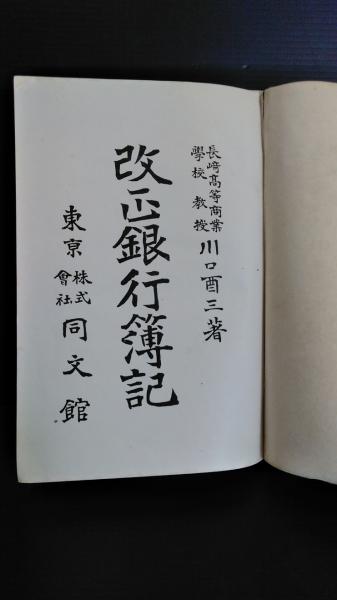 長崎高等商業
學校教授 川口酉三著
改正銀行簿記
東京 株式會社 同文館